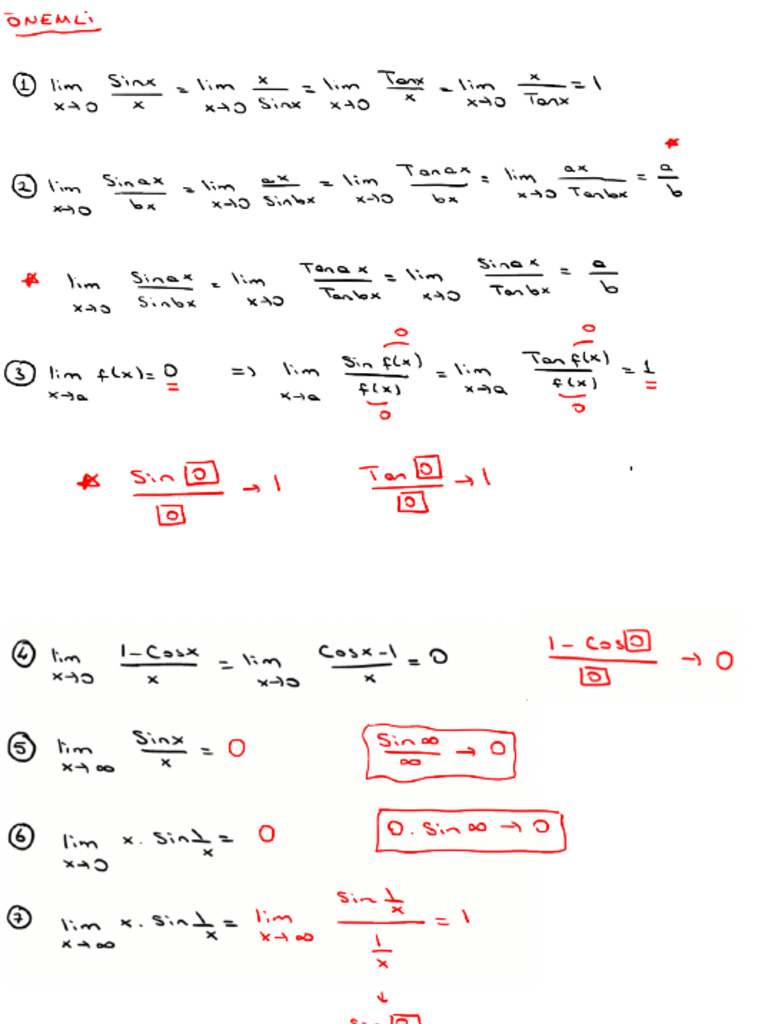 ÖNEMLİ
① lim x→0 Sinx/x = lim x→0 x/Sinx = lim x→0 Tanx/x = lim x→0 x/Tanx = 1
② lim x→0 Sinax/bx = lim x→0 ax/Sinbx = lim x→0 Tanax/bx = lim x→0 ax/Tanbx = a/b *
* lim x→0 Sinax/Sinbx = lim x→0 Tanax/Tanbx = lim x→0 Sinax/Tanbx = a/b
③ lim x→a f(x) = 0 => lim x→a Sin f(x)/f(x) = lim x→a Tan f(x)/f(x) = 1
0 0
0 0
* Sin 0/0 → 1 Tan 0/0 → 1
④ lim x→0 1-Cosx/x = lim x→0 Cosx-1/x = 0 1-Cos0/0 → 0
⑤ lim x→∞ Sinx/x = 0 Sin∞/∞ → 0
⑥ lim x→0 x. Sin 1/x = 0 0. Sin∞ → 0
⑦ lim x→∞ x. Sin 1/x = lim x→∞ Sin 1/x / 1/x = 1
↓
Sin 0